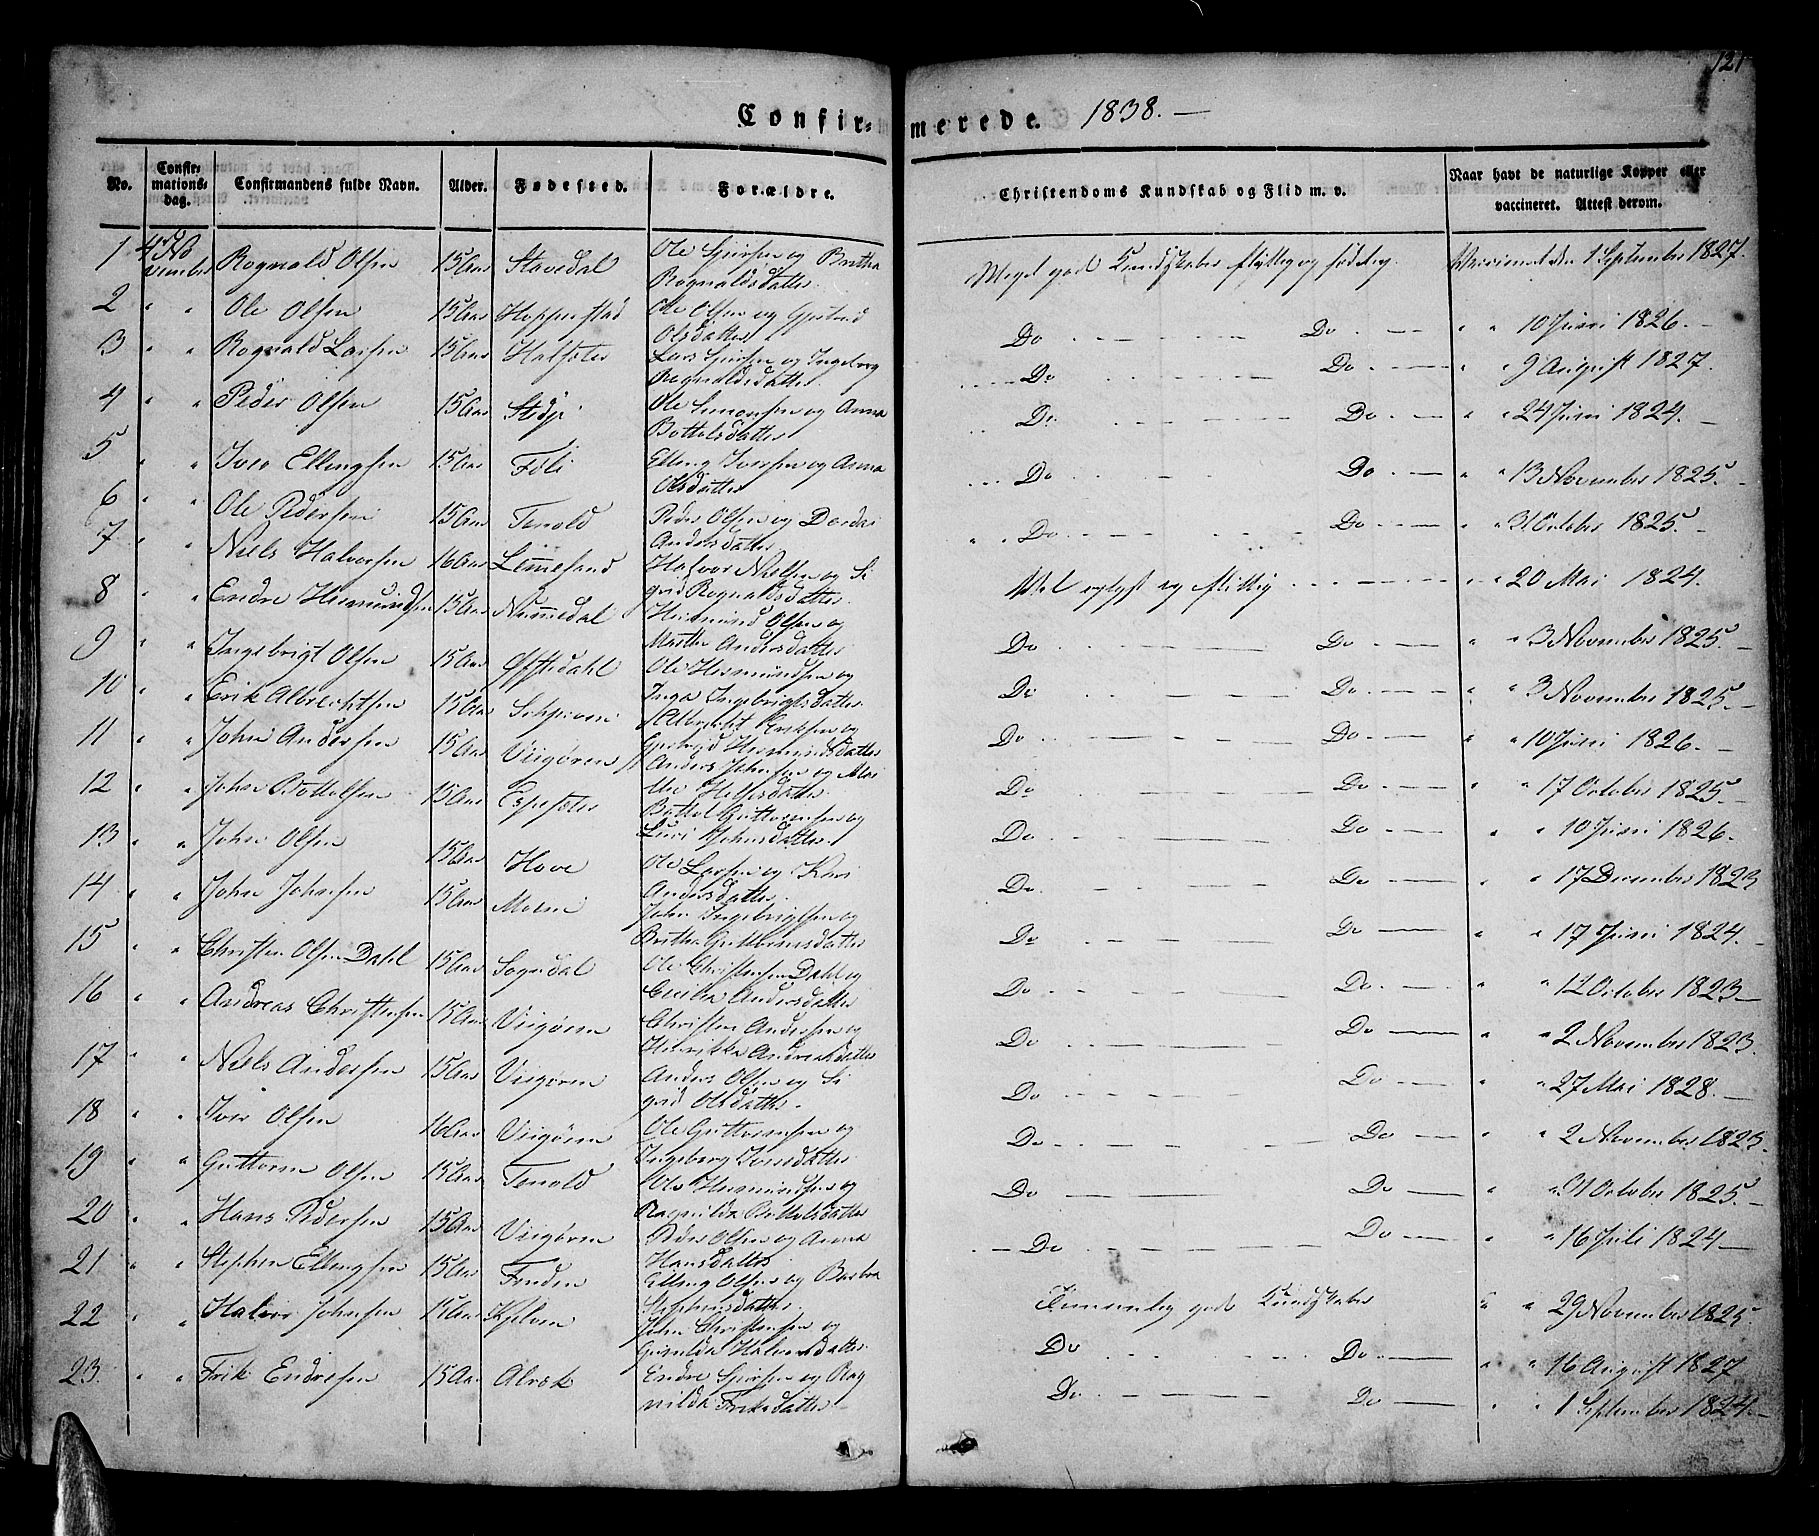 121
Confir=merede. 1838. —
No. Confir-mations-dag. Confirmandens fulde Navn. Alder. Fødested. Forældre. Christendoms Kundskab og Flid m. v. Naar havt de naturlige Kopper eller vaccineret. Attest derom.
1 4de November Rognald Olsen 15 Aar Stavedal Ole Sjursen og Britha Rognaldsdatter. Meget god Kundskaber flittig og sædelig. Vaccineret den 1 September 1827.
2 " " Ole Olsen 15 Aar Hopperstad Ole Olsen og Olsdatter Do Do " " 10 Juni 1826.
3 " " Rognald Larsen 15 Aar Lars Sjursen og Ingeborg Rognaldsdatter. Do Do " " 9 August 1827.
4 " " Peder Olsen 15 Aar Stedje Ole Simonsen og Anna Bottolsdatter Do Do " " 24 Juni 1824.
5 " " Iver Ellingsen 15 Aar Føli Elling Iversen og Anna Olsdatter Do Do " " 13 November 1825.
6 " " Ole Pedersen 15 Aar Tenold Peder Olsen og Dordei Andersdatter Do Do " " 31 October 1825.
7 " " Niels Halvorsen 16 Aar Halvor Nielsen og Sigrid Rognaldsdatter. Vel oplyst og flittig " " 20 Mai 1824.
8 " " Endre Hermundsen 15 Aar Nummedal Hermund Olsen og Martha Andersdatter Do Do " " 3 November 1825.
9 " " Ingebrigt Olsen 15 Aar Øfstedahl Ole Hermundsen og Inga Ingebrigtsdatter Do Do " " 3 November 1825.
10 " " Erik Albrechtsen 15 Aar Albrecht Eriksen og Hermundsdatter Do Do " " 10 Juni 1826.
11 " " John Andersen 15 Aar Viigøren Anders Johnsen og Do Do " " 17 October 1825.
12 " " John Bottolsen 15 Aar Espesæter Bottol Guttormsen og Johnsdatter Do Do " " 10 Juni 1826.
13 " " John Olsen 15 Aar Hove Ole Larsen og Kari Andersdatter. Do Do " " 17 December 1823
14 " " John Johnsen 15 Aar John Ingebrigtsen og Britha Guttormsdatter Do Do " " 17 Juni 1824.
15 " " Christen Olsen Dahl 15 Aar Sogndal Ole Christensen Dahl og Cecilia Andersdatter Do Do " " 12 October 1823
16 " " Andreas Christensen 15 Aar Viigøren Christen Andersen og Henrikka Andreasdatter Do Do " " 2 November 1823.
17 " " Niels Andersen 15 Aar Viigøren Anders Olsen og Sigrid Olsdatter. Do Do " " 27 Mai 1828.
18 " " Iver Olsen 16 Aar Viigøren Ole Guttormsen og Ingeborg Iversdatter Do Do " " 2 November 1823.
19 " " Guttorm Olsen 15 Aar Tenold Ole Hermundsen og Ragnilda Bottolsdatter Do Do " " 31 October 1825.
20 " " Hans Pedersen 15 Aar Viigøren Peder Olsen og Anna Hansdatter Do Do " " 16 Juli 1824
21 " " Stephen Ellingsen 15 Aar Fenden Elling Olsen og Barbra Stephensdatter Temmelig gode Kundskaber " " 29 November 1825.
22 " " Halvor Johnsen 15 Aar John Christensen og Halvorsdatter Do Do " " 16 August 1827
23. " " Erik Endresen 15 Aar Alræk Endre Sjursen og Ragnilda Eriksdatter Do Do " " 1 September 1824.